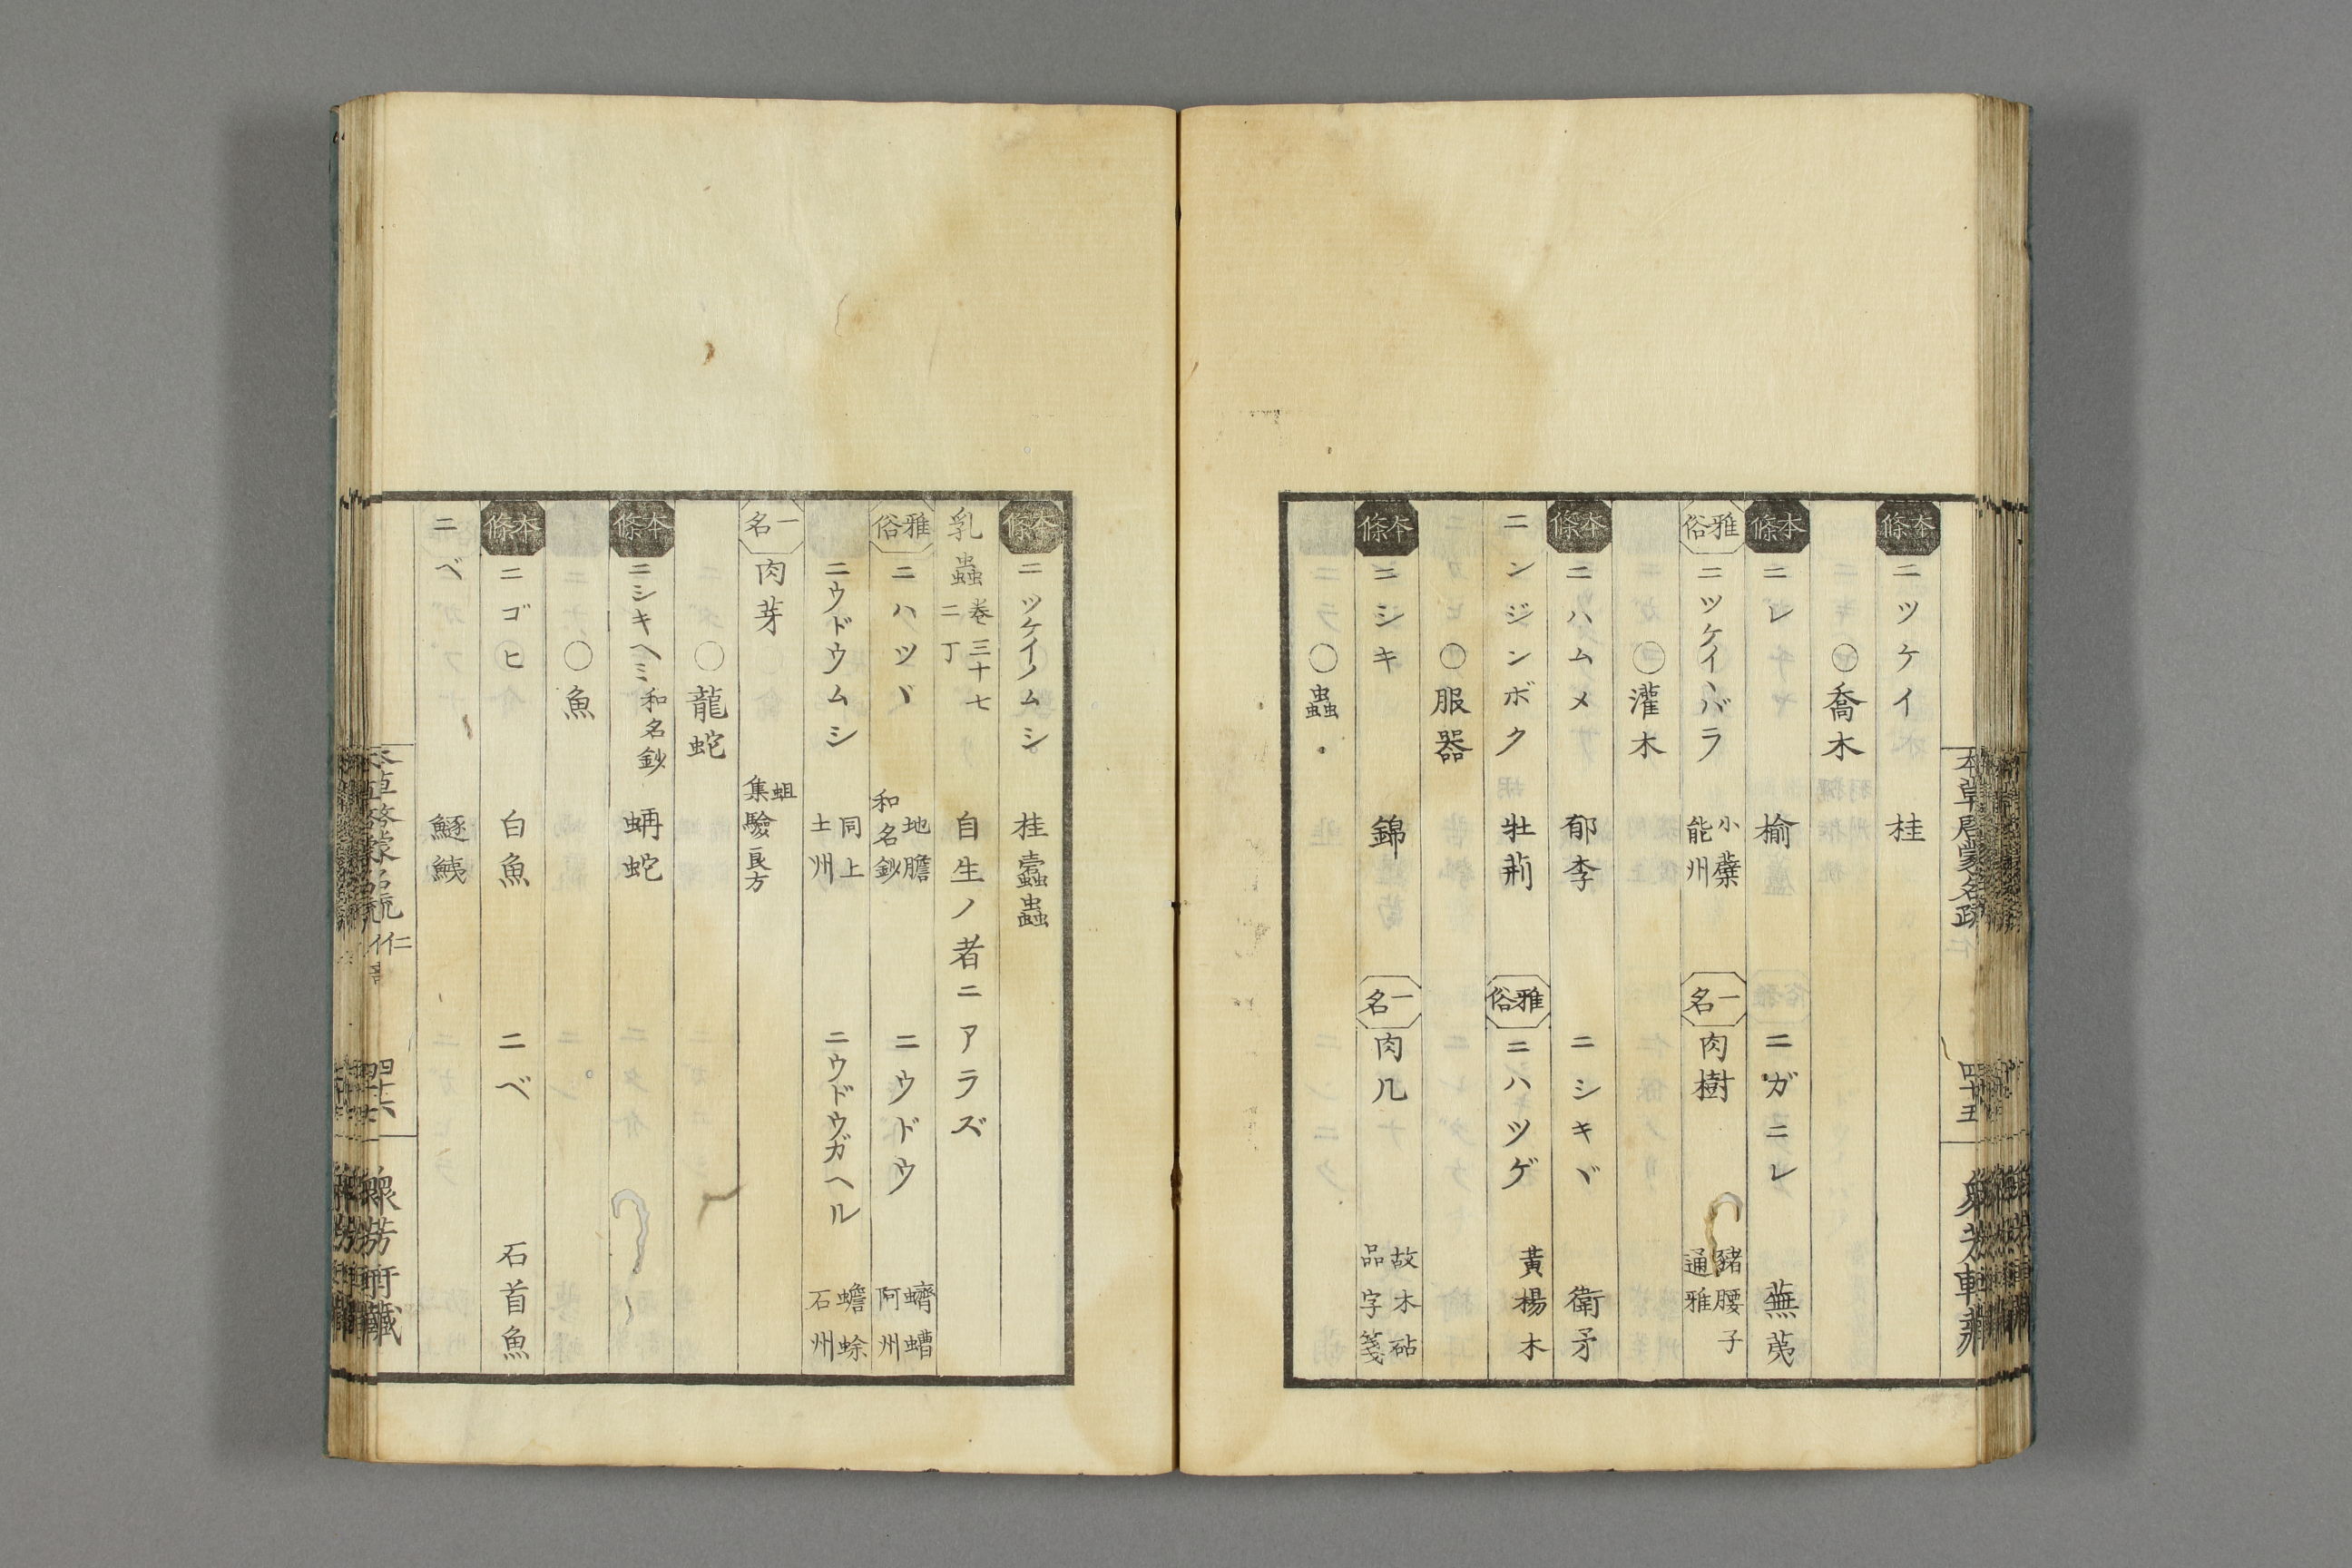 本條 ニツケイ 桂
○喬木
本條 ニレ 榆 ニガニレ 蕪荑
雅俗 ニツケイバラ 小蘗 能州 一名 肉樹 豬腰子 通雅
○灌木
本條 ニハムメ 郁李 ニシキヾ 衛矛
ニンジンボク 牡荊 雅俗 ニハツゲ 黃楊木
○服器
本條 ニシキ 錦 一名 肉几 故木砧 品字箋
○蟲
本草啓蒙名疏
四十五
衆芳軒藏
本條 ニツケイノムシ 桂蠹蟲
乳蟲 卷三十七 二丁 自生ノ者ニアラズ
雅俗 ニハツヾ 地膽 和名鈔 ニウドウ 蠐螬 阿州
ニウドウムシ 同上 土州 ニウドウガヘル 蟾蜍 石州
一名 肉芽 蛆 集驗良方
○龍蛇
本條 ニシキヘミ 和名鈔 蚺蛇
○魚
本條 ニゴヒ 白魚 ニベ 石首魚
ニベ 鱁鮧
仁
四十六